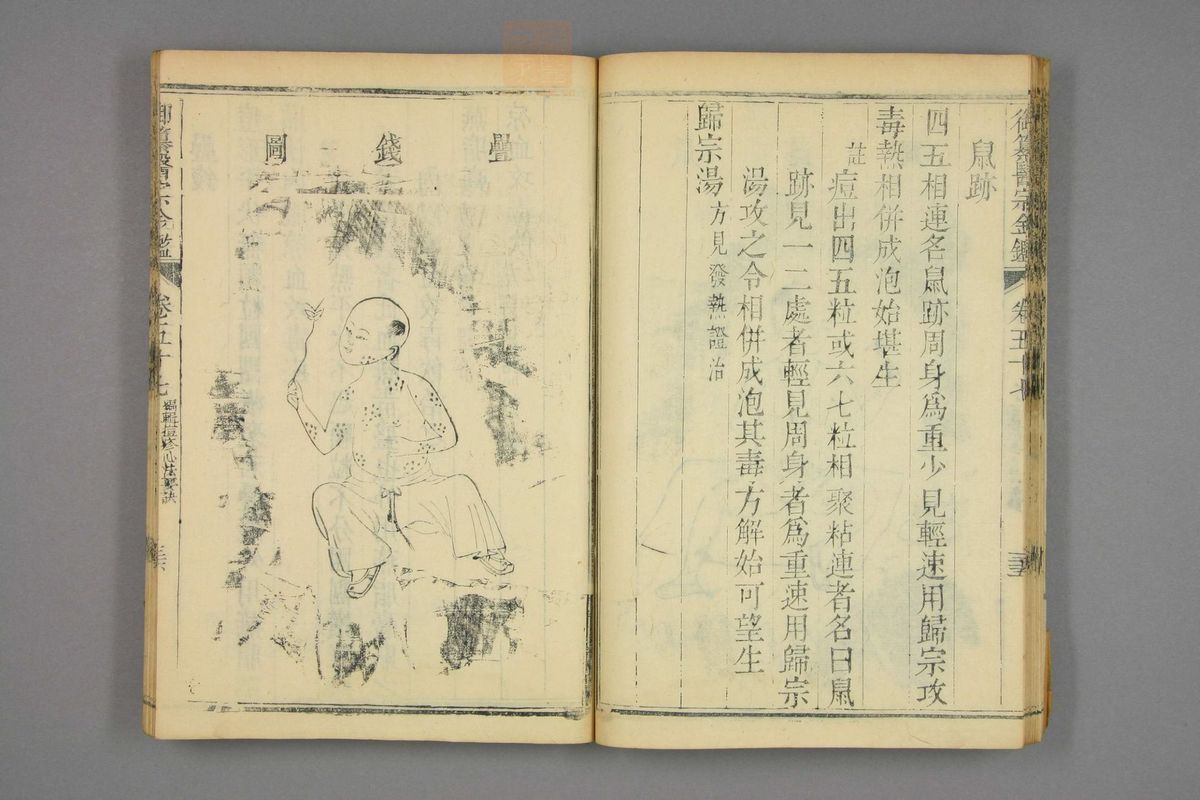 御纂醫宗金鑑 卷五十七
鼠跡
四五相連名鼠跡周身爲重少見輕速用歸宗攻
毒熱相併成泡始堪生
註 痘出四五粒或六七粒相聚粘連者名曰鼠
跡見一二處者輕見周身者爲重速用歸宗
湯攻之令相併成泡其毒方解始可望生
歸宗湯 方見發熱證治
疊錢圖
御纂醫宗金鑑 卷五十七 編輯痘疹心法要訣